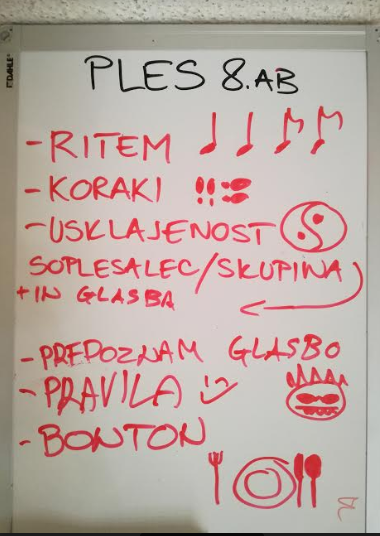 DAHLE
PLES 8.AB
- RITEM
- KORAKI
- USKLAJENOST
SOPLESALEC/SKUPINA
+ IN GLASBA
- PREPOZNAM GLASBO
- PRAVILA :)
- BONTON